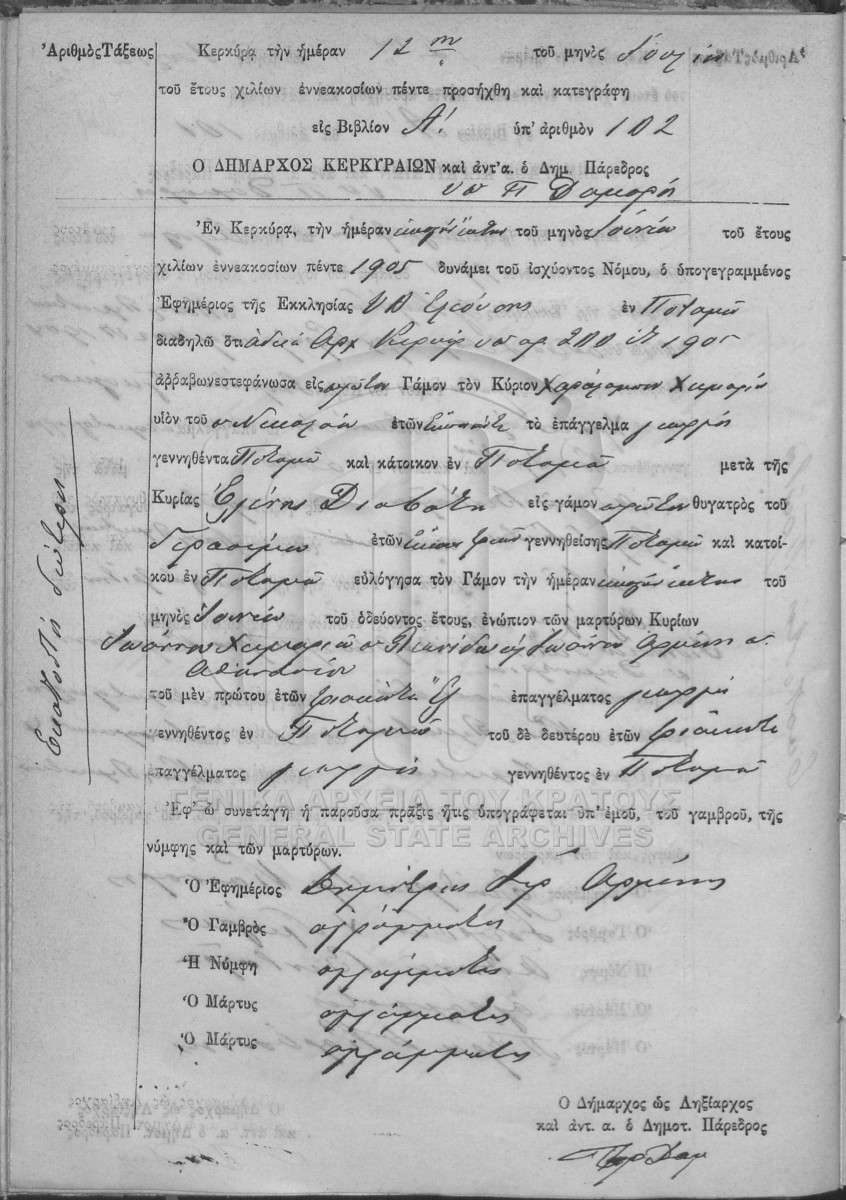 Ἀριθμὸς Τάξεως
Κερκύρα τὴν ἡμέραν 12 τοῦ μηνὸς
τοῦ ἔτους χιλίων ἐννεακοσίων πέντε προσήχθη καὶ κατεγράφη
εἰς Βιβλίον Α! ὑπ' ἀριθμὸν 102
Ο ΔΗΜΑΡΧΟΣ ΚΕΡΚΥΡΑΙΩΝ καὶ ἀντ'α. ὁ Δημ. Πάρεδρος
Ἐν Κερκύρᾳ, τὴν ἡμέραν εἰκοστὴν ἕκτην τοῦ μηνὸς Ἰουνίου τοῦ ἔτους
χιλίων ἐννεακοσίων πέντε 1905 δυνάμει τοῦ ἰσχύοντος Νόμου, ὁ ὑπογεγραμμένος
Ἐφημέριος τῆς Ἐκκλησίας ΥΘ Ἐλεούσης ἐν Ποταμῷ
διαδηλῶ ὅτι ἀδείᾳ Ἀρχ Κερκύρ ὑπ αρ 200 ἔτ 1905
ἀρραβωνεστεφάνωσα εἰς πρῶτον Γάμον τὸν Κύριον Χαράλαμπον
υἱὸν τοῦ Νικολάου ἐτῶν τὸ ἐπάγγελμα γεωργὸς
γεννηθέντα Ποταμῷ καὶ κάτοικον ἐν Ποταμῷ μετὰ τῆς
Κυρίας Ἑλένης εἰς γάμον πρῶτον θυγατρὸς τοῦ
Γερασίμου ἐτῶν εἴκοσι τριῶν γεννηθείσης Ποταμῷ καὶ κατοί-
κου ἐν Ποταμῷ εὐλόγησα τὸν Γάμον τὴν ἡμέραν εἰκοστὴν ἕκτην τοῦ
μηνὸς Ἰουνίου τοῦ ὁδεύοντος ἔτους, ἐνώπιον τῶν μαρτύρων Κυρίων
Ἰωάννου Ἰωάννου Ἀρμένη
Ἀθανασίου
τοῦ μὲν πρώτου ἐτῶν τριάκοντα ἓξ ἐπαγγέλματος γεωργὸς
γεννηθέντος ἐν Ποταμῷ τοῦ δὲ δευτέρου ἐτῶν τριάκοντα
ἐπαγγέλματος γεωργὸς γεννηθέντος ἐν Ποταμῷ
ΓΕΝΙΚΑ ΑΡΧΕΙΑ ΤΟΥ ΚΡΑΤΟΥΣ
Ἐφ' ᾧ συνετάγη ἡ παροῦσα πρᾶξις ἥτις ὑπογράφεται ὑπ' ἐμοῦ, τοῦ γαμβροῦ, τῆς
GENERAL STATE ARCHIVES
νύμφης καὶ τῶν μαρτύρων.
Ὁ Ἐφημέριος Δημήτριος Ἱερ Ἀρμένης
Ὁ Γαμβρὸς ἀγράμματος
Ἡ Νύμφη ἀγράμματος
Ὁ Μάρτυς ἀγράμματος
Ὁ Μάρτυς ἀγράμματος
Ἑκατοστὴ δευτέρα
Ὁ Δήμαρχος ὡς Ληξίαρχος
καὶ ἀντ. α. ὁ Δημοτ. Πάρεδρος